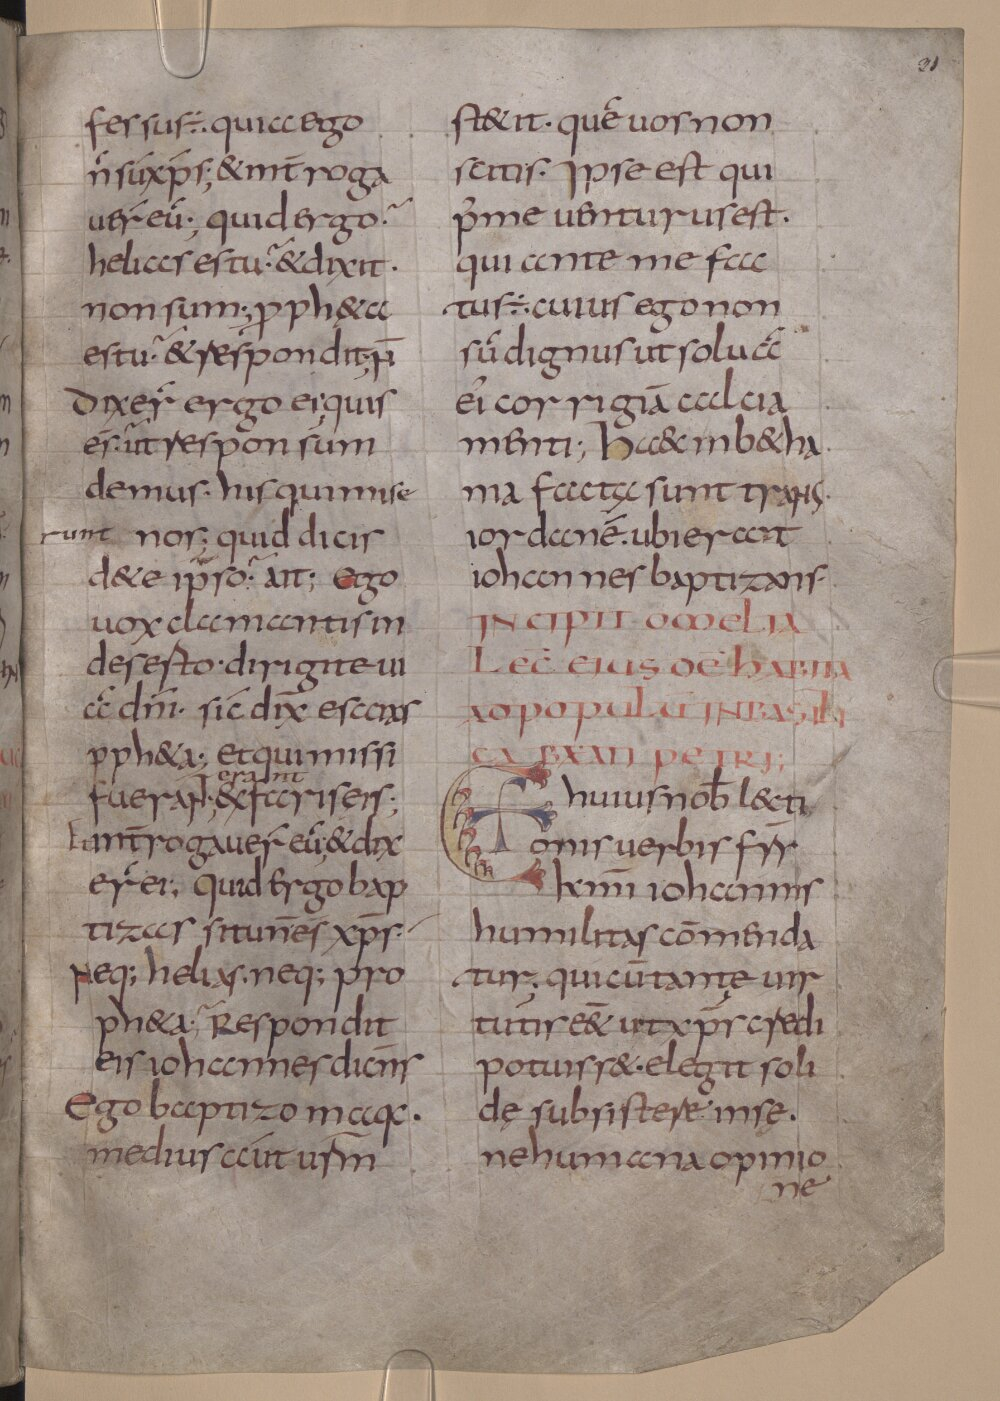 31
fessus:. quia ego
n̄ sū xp̄s; & int̄roga
uer̄ eū; quid ergo
helias es tu & dixit.
non sum; pph&a
es tu & respondit; n̄
Dixer̄ ergo ei; quis
es. ut respon sum
demus. his qui mise
runt nos; quid dicis
d&e ipso. ait; Ego
uox clamantis in
deserto. dirigite ui
ā dn̄i. sic̄ dix̄ esaias
pph&a; et qui missi
erant
fuerant; & fariseis;
Et int̄rogauer̄ eū; & dix
er̄ ei; Quid ergo bap
tizas si tu n̄ es xp̄s.
Neq; helias. neq; pro
ph&a; Respondit
eis iohannes dicens
Ego baptizo in aqa.
medius aūt ūsm
st&it. quē uos non
scitis. Ipse est qui
p̄ me uenturus est.
qui ante me fac
tus:. cuius ego non
sū dignus ut soluā
ei corrigiā calcia
menti; Hæc in b&ha
nia facta sunt trans
iordanē. ubi erat
iohannes baptizans.
INCIPIT OMELIA
Lec̄ eius oē habita
ad populū in basili
ca beati petri;
Ex huius nob̄ l&cti
onis uerbis fr̄r
k̄mi iohannis
humilitas cōmenda
tur; qui cū tantę uir
tutis e&̄ ut xp̄s credi
potuiss&. elegit soli
dę subsistere in se.
ne humana opinio
ne